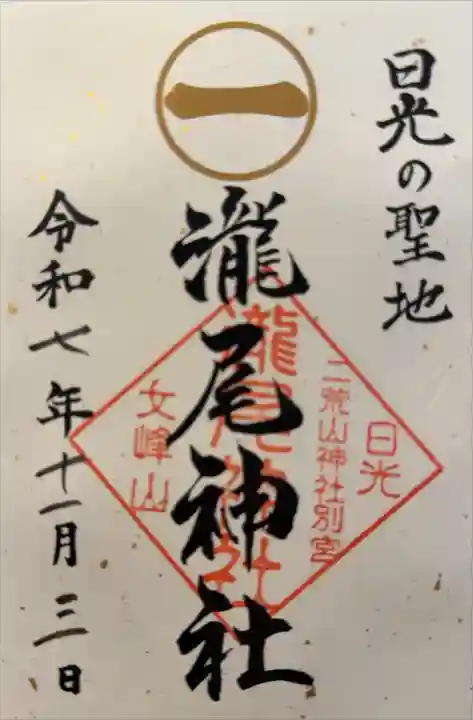 日光の聖地
一
瀧尾神社
令和七年十一月三日
日光
二荒山神社別宮
瀧尾神社
女峰山